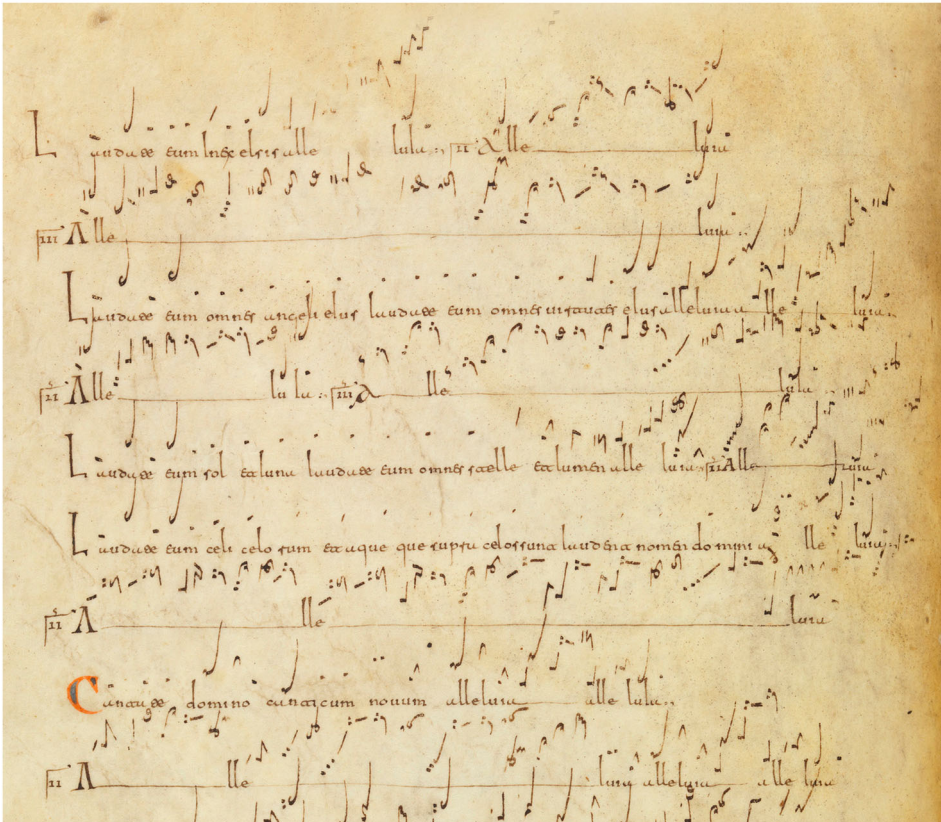 Laudate eum In excelsis alle luia :: II Alle luia
III Alle luia ::
Laudate eum omnes angeli eius laudate eum omnes uirtutes eius alleluia alle luia
II Alle lu ia :: III A lle luia
Laudate eum sol et luna laudate eum omnes stelle et lumen alle luia II Alle luia
Laudate eum celi celorum et aque que super celos sunt laudent nomen domini a lle luia
II A lle luia
Cantate domino canticum nouum alleluia alle luia ::
II A lle luia alleluia alle luia